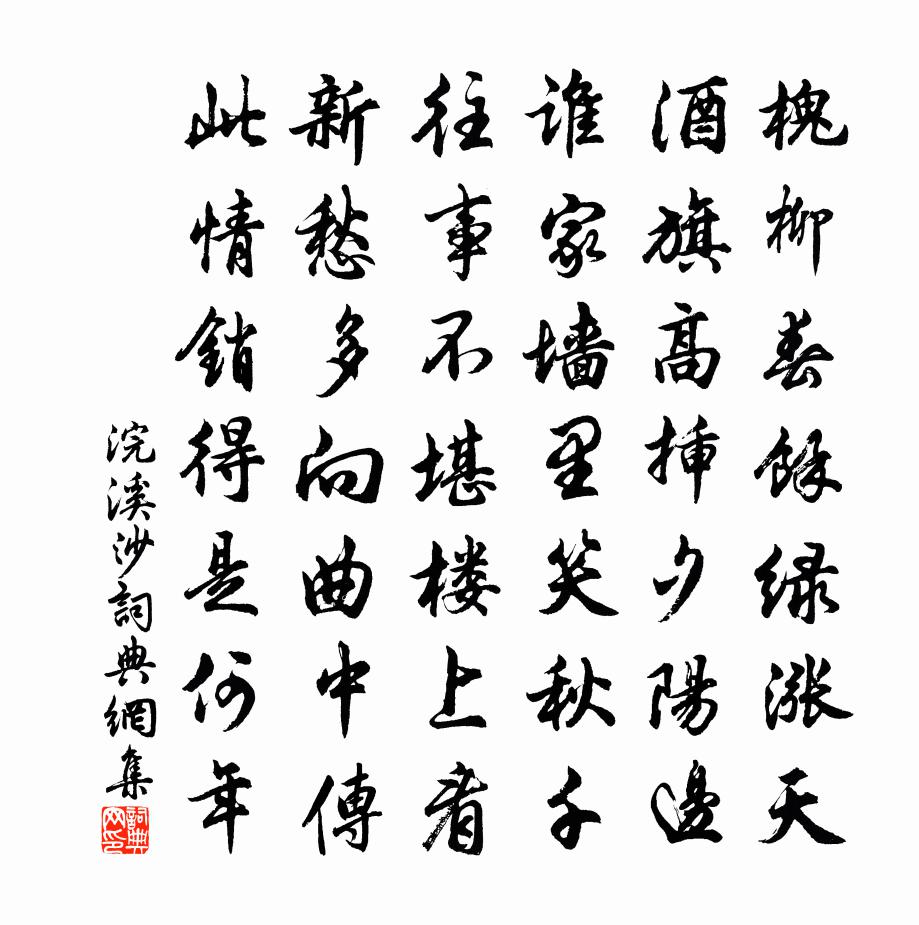 槐柳春餘绿涨天
酒旗高插夕陽邊
谁家墙里笑秋千
往事不堪楼上看
新愁多向曲中傳
此情銷得是何年
浣溪沙詞典網集
詞典网印